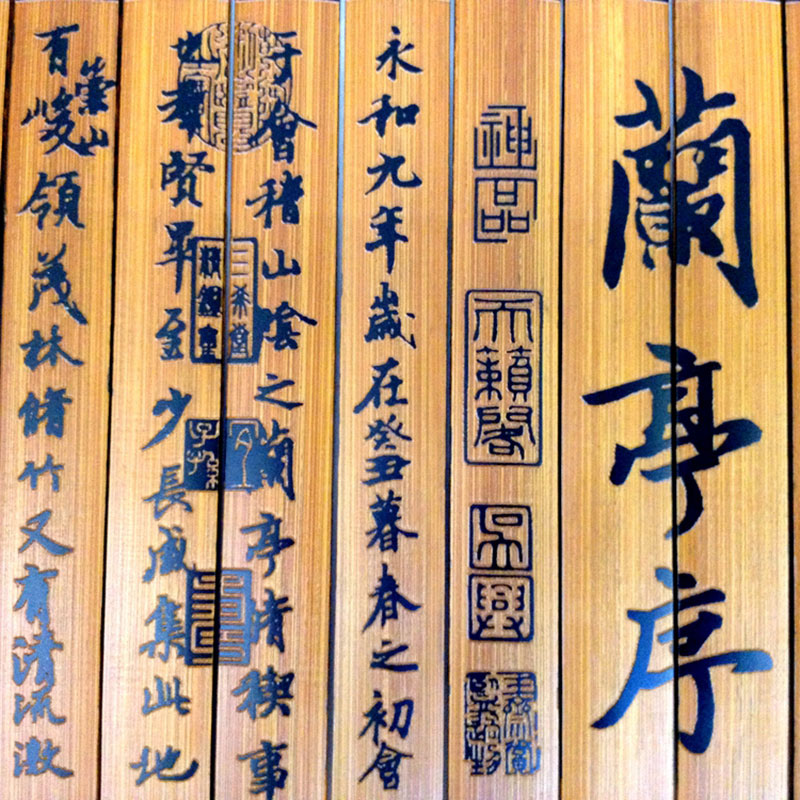 蘭亭序
神品
天籟閣
吳興
永和九年歲在癸丑暮春之初會
于會稽山陰之蘭亭脩禊事
三希堂
精鑑璽
也羣賢畢至少長咸集此地
有崇山峻領茂林脩竹又有清流激